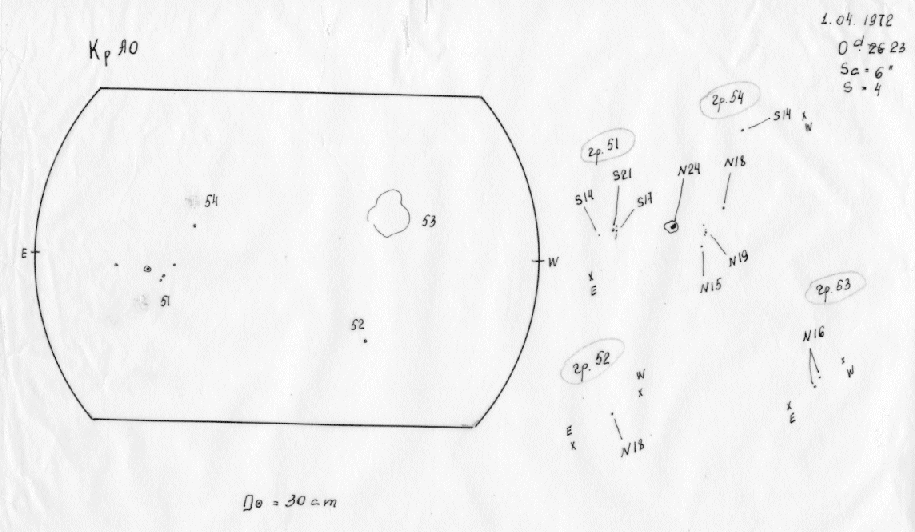 1.04.1972
0ᵈ.26 23
Sa = 6"
S = 4
Кр АО
гр. 54
S14
X
W
гр. 51
S21
N24
N18
S14
S17
54
53
E
W
N19
X
E
N15
51
гр. 53
52
N16
гр. 52
W
X
X
W
X
E
E
X
N18
D⊙ = 30 cm